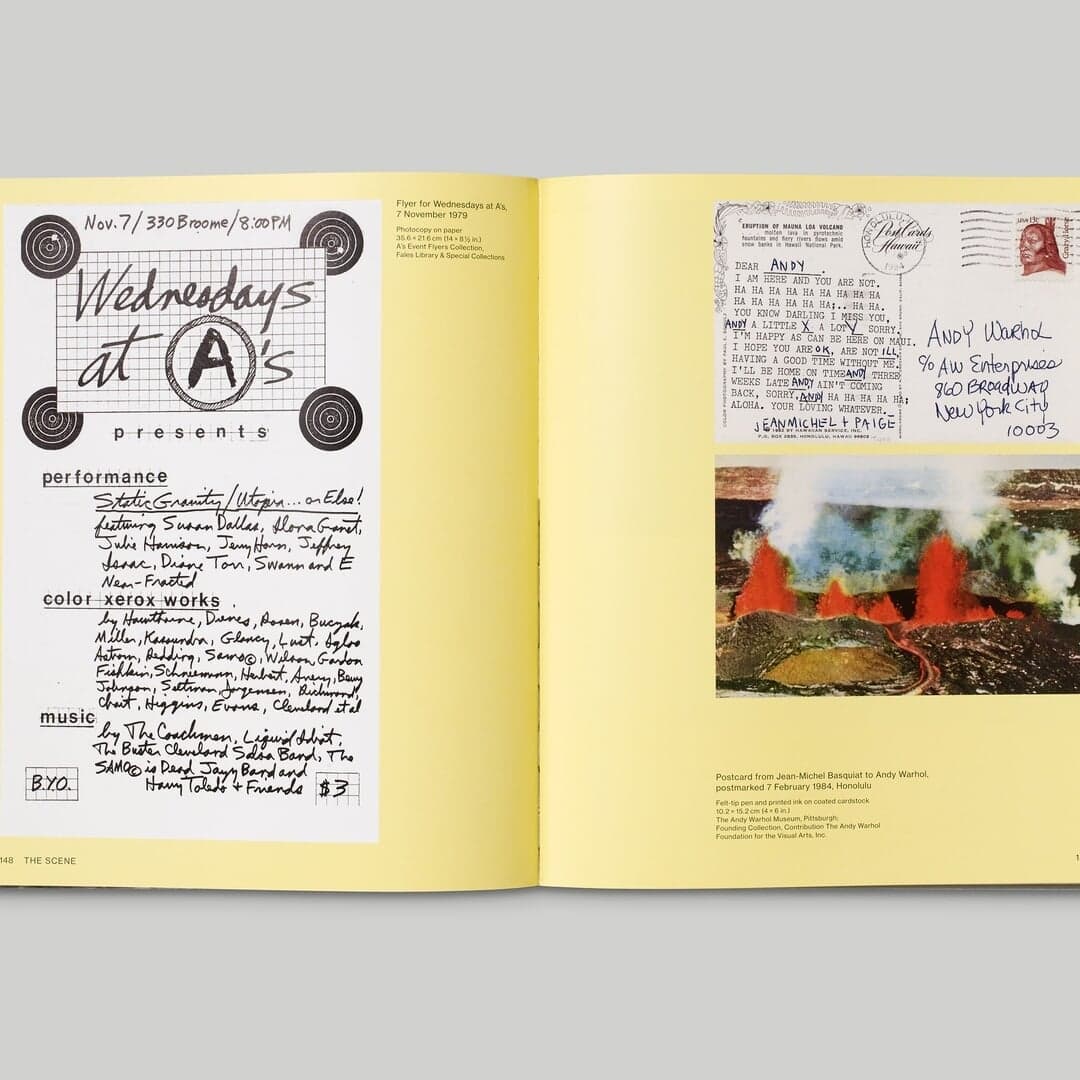 Nov. 7/ 330 Broome/8:00PM
Wednesdays
at A's
presents
performance
Static Gravity/Utopia... or Else!
featuring Susan Dallas, Ilona Granet,
Julie Harrison, Jerry Horn, Jeffrey
Isaac, Diane Torr, Swann and E
Near-Fracted
color xerox works
by Hawthorne, Dienes, Rosen, Buczak,
Miller, Kassandra, Glancy, Lust, Igloo
Astrom, Redding, Samo©, Wilson, Gordon
Fishkin, Schneemann, Herbert, Avery, Beny
Johnson, Saltman, Jorgensen, Richmond,
Chait, Higgins, Evans, Cleveland et al
music
by The Coachmen, Liquid Idiot,
The Buster Cleveland Salsa Band, The
SAMO© is Dead Jazz Band and
Harry Toledo + Friends
B.Y.O.
$3
Flyer for Wednesdays at A's,
7 November 1979
Photocopy on paper
35.6 × 21.6 cm (14 × 8½ in.)
A's Event Flyers Collection,
Fales Library & Special Collections
148 THE SCENE
ERUPTION OF MAUNA LOA VOLCANO
molten lava in pyrotechnic
fountains and fiery rivers flows amid
snow banks in Hawaii National Park.
DEAR ANDY.
I AM HERE AND YOU ARE NOT.
HA HA HA HA HA HA HA HA HA
HA HA HA HA HA HA;.. HA HA.
YOU KNOW DARLING I MISS YOU,
ANDY A LITTLE X A LOT Y SORRY.
I'M HAPPY AS CAN BE HERE ON MAUI.
I HOPE YOU ARE OK, ARE NOT ILL,
HAVING A GOOD TIME WITHOUT ME.
I'LL BE HOME ON TIME ANDY THREE
WEEKS LATE ANDY AIN'T COMING
BACK, SORRY. ANDY HA HA HA HA HA;
ALOHA. YOUR LOVING WHATEVER.
JEANMICHEL + PAIGE
BY HAWAIIAN SERVICE, INC.
P.O. BOX 2835, HONOLULU, HAWAII 96803
COLOR PHOTOGRAPHY BY PAUL E.
HONOLULU
PostCards
Hawaii
1984
USA 13c
ANDY WARHOL
c/o AW Enterprises
860 BROADWAY
New York City
10003
Postcard from Jean-Michel Basquiat to Andy Warhol,
postmarked 7 February 1984, Honolulu
Felt-tip pen and printed ink on coated cardstock
10.2 × 15.2 cm (4 × 6 in.)
The Andy Warhol Museum, Pittsburgh;
Founding Collection, Contribution The Andy Warhol
Foundation for the Visual Arts, Inc.